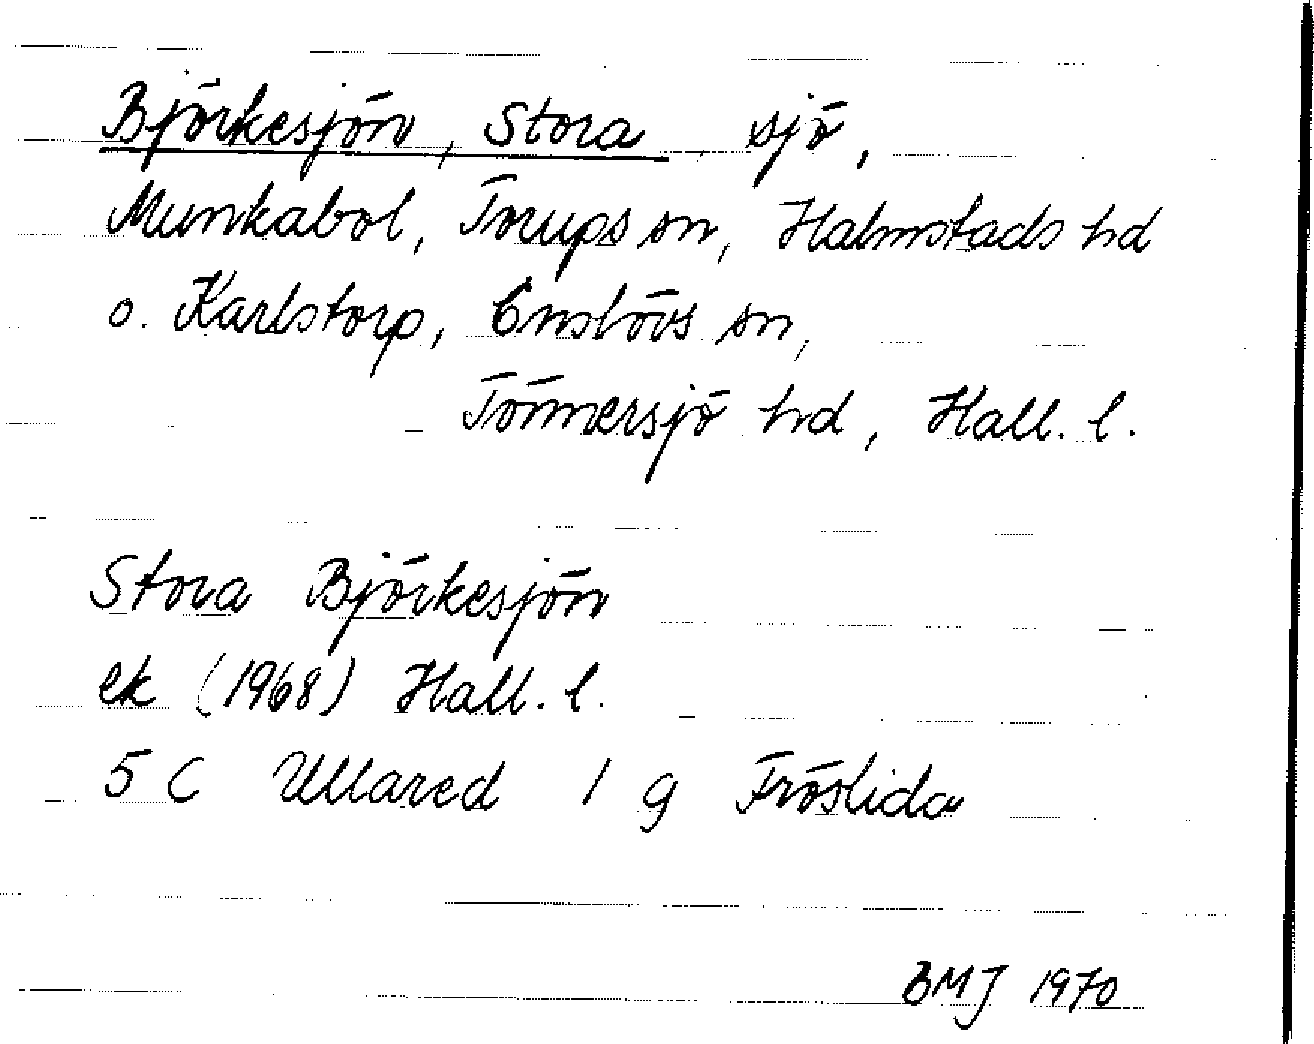 Björkesjön, Stora, sjö,
Munkabol, Torups sn, Halmstads hd
o. Karlstorp, Enslövs sn,
Tönnersjö hd, Hall. l.
Stora Björkesjön
ek (1968) Hall. l.
5 C Ullared 1 g Fröslida
BMJ 1970